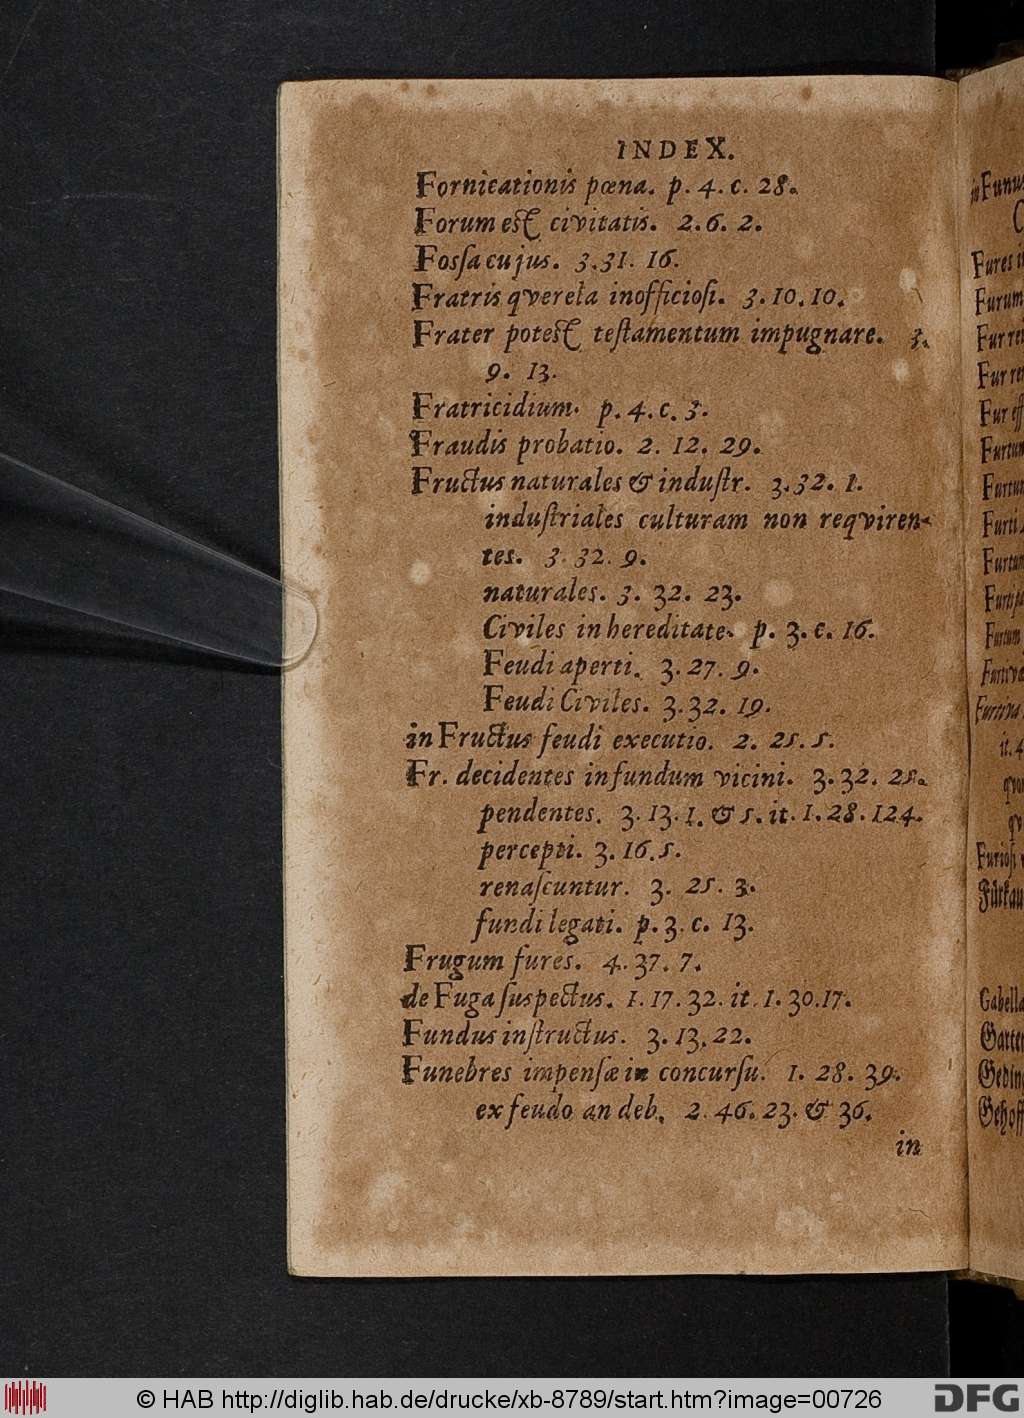 INDEX.
Fornicationis pœna. p. 4. c. 28.
Forum est civitatis. 2. 6. 2.
Fossa cujus. 3. 31. 16.
Fratris qverela inofficiosi. 3. 10. 10.
Frater potest testamentum impugnare. 3.
9. 13.
Fratricidium. p. 4. c. 3.
Fraudis probatio. 2. 12. 29.
Fructus naturales & industr. 3. 32. 1.
industriales culturam non reqviren-
tes. 3. 32. 9.
naturales. 3. 32. 23.
Civiles in hereditate. p. 3. c. 16.
Feudi aperti. 3. 27. 9.
Feudi Civiles. 3. 32. 19.
in Fructus feudi executio. 2. 25. 5.
Fr. decidentes in fundum vicini. 3. 32. 25.
pendentes. 3. 13. 1. & 5. it. 1. 28. 124.
percepti. 3. 16. 5.
renascuntur. 3. 25. 3.
fundi legati. p. 3. c. 13.
Frugum fures. 4. 37. 7.
de Fuga suspectus. 1. 17. 32. it. 1. 30. 17.
Fundus instructus. 3. 13. 22.
Funebres impensæ in concursu. 1. 28. 39.
ex feudo an deb. 2. 46. 23. & 36.
in
in Funus
Fures i
Furum
Fur re
Fur re
Fur eff
Furtum
Furtum
Furti
Furtum
Furtum
it. 4
Furiosi
Gabella
Garten
Geding
Gehoff
© HAB http://diglib.hab.de/drucke/xb-8789/start.htm?image=00726
DFG